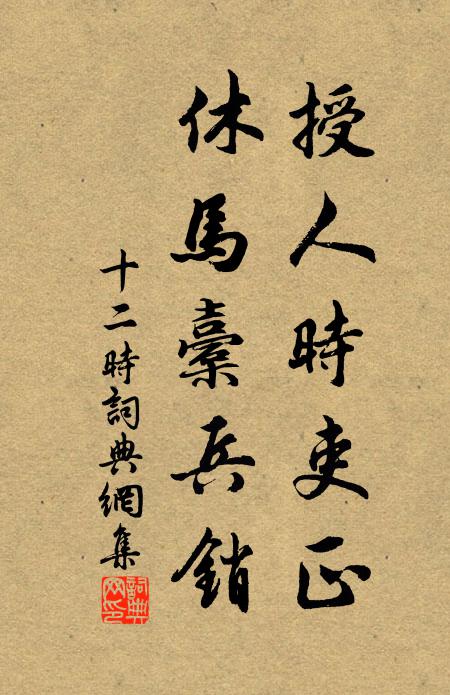 授人時吏正
休馬櫜兵銷
十二時詞典網集
詞典网印